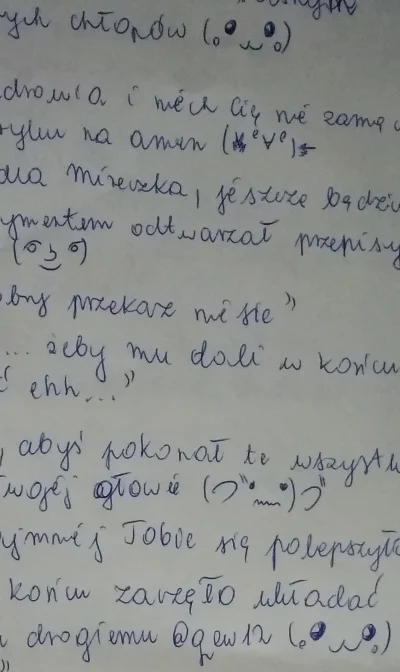 ych chłopów (。◕‿◕。)
drowia i niech Cię nie zamę
rylu na amen (*^v^)
dla Mireczka, jeszcze będzi
ymentem odtwarzał przepisy
(ʘ ͜ʖ ʘ)
obny przekaz nie się"
... żeby mu dali w końcu
ć ehh..."
, abyś pokonał te wszystk
wojej głowie (つ ͡° ͟ʖ ͡°)つ
ymniej Tobie się polepszyło
końcu zaczęło układać
drogiemu @qew12 (。◕‿◕。)